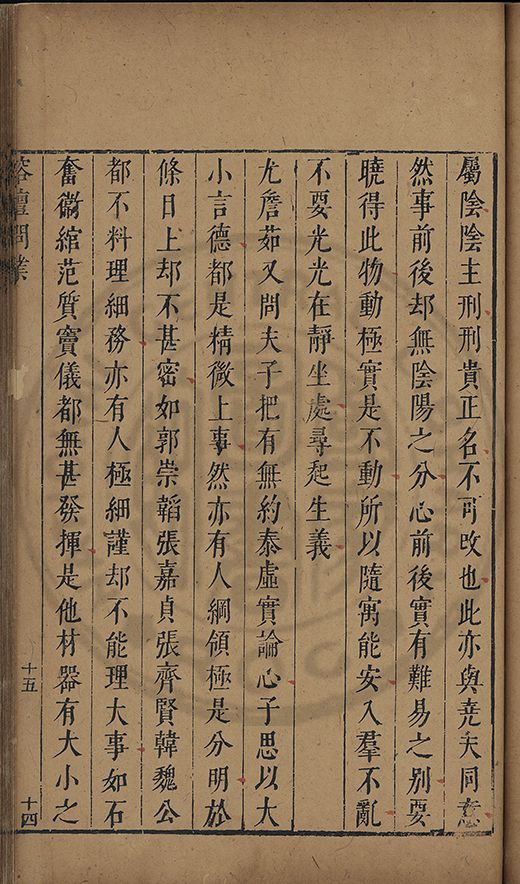 屬陰陰主刑刑貴正名不可改也此亦與堯夫同意
然事前後却無陰陽之分心前後實有難易之別要
曉得此物動極實是不動所以隨寓能安入羣不亂
不要光光在靜坐處尋起生義
尤詹茹又問夫子把有無約泰虛實論心子思以大
小言德都是精微上事然亦有人綱領極是分明於
條目上却不甚密如郭崇韜張嘉貞張齊賢韓魏公
都不料理細務亦有人極細謹却不能理大事如石
奮衛綰范質竇儀都無甚發揮是他材器有大小之
榕壇問業
十五
十四